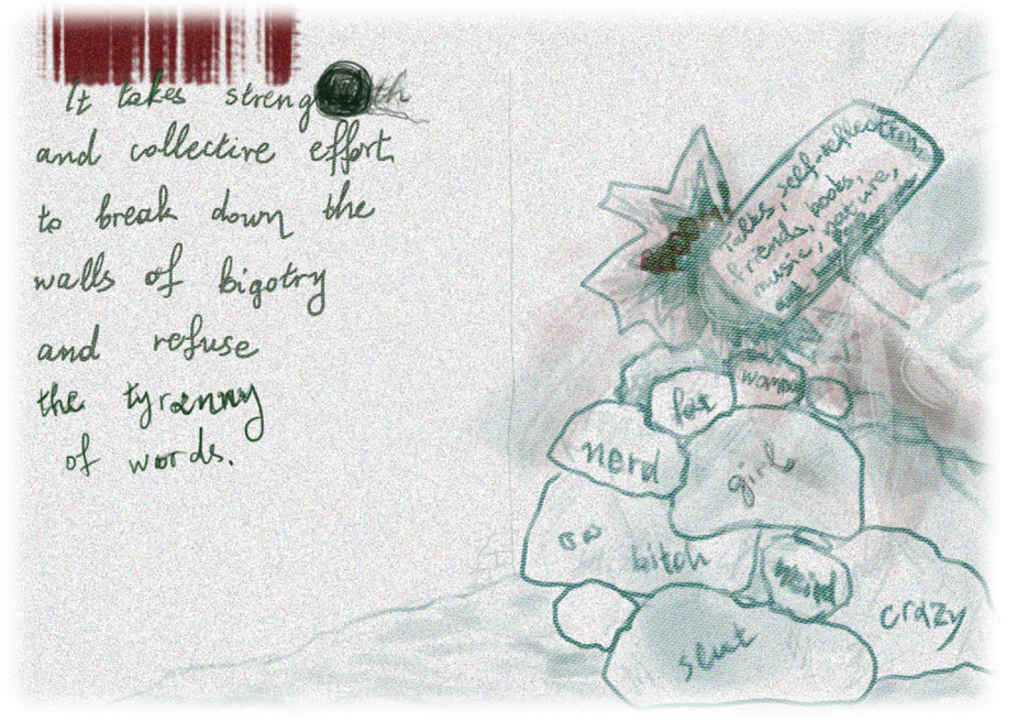 It takes strength
and collective effort
to break down the
walls of bigotry
and refuse
the tyranny
of words.
Talks, self-reflection,
friends, books,
music, nature,
and
BOOM
woman
fat
nerd
girl
bitch
weird
crazy
slut